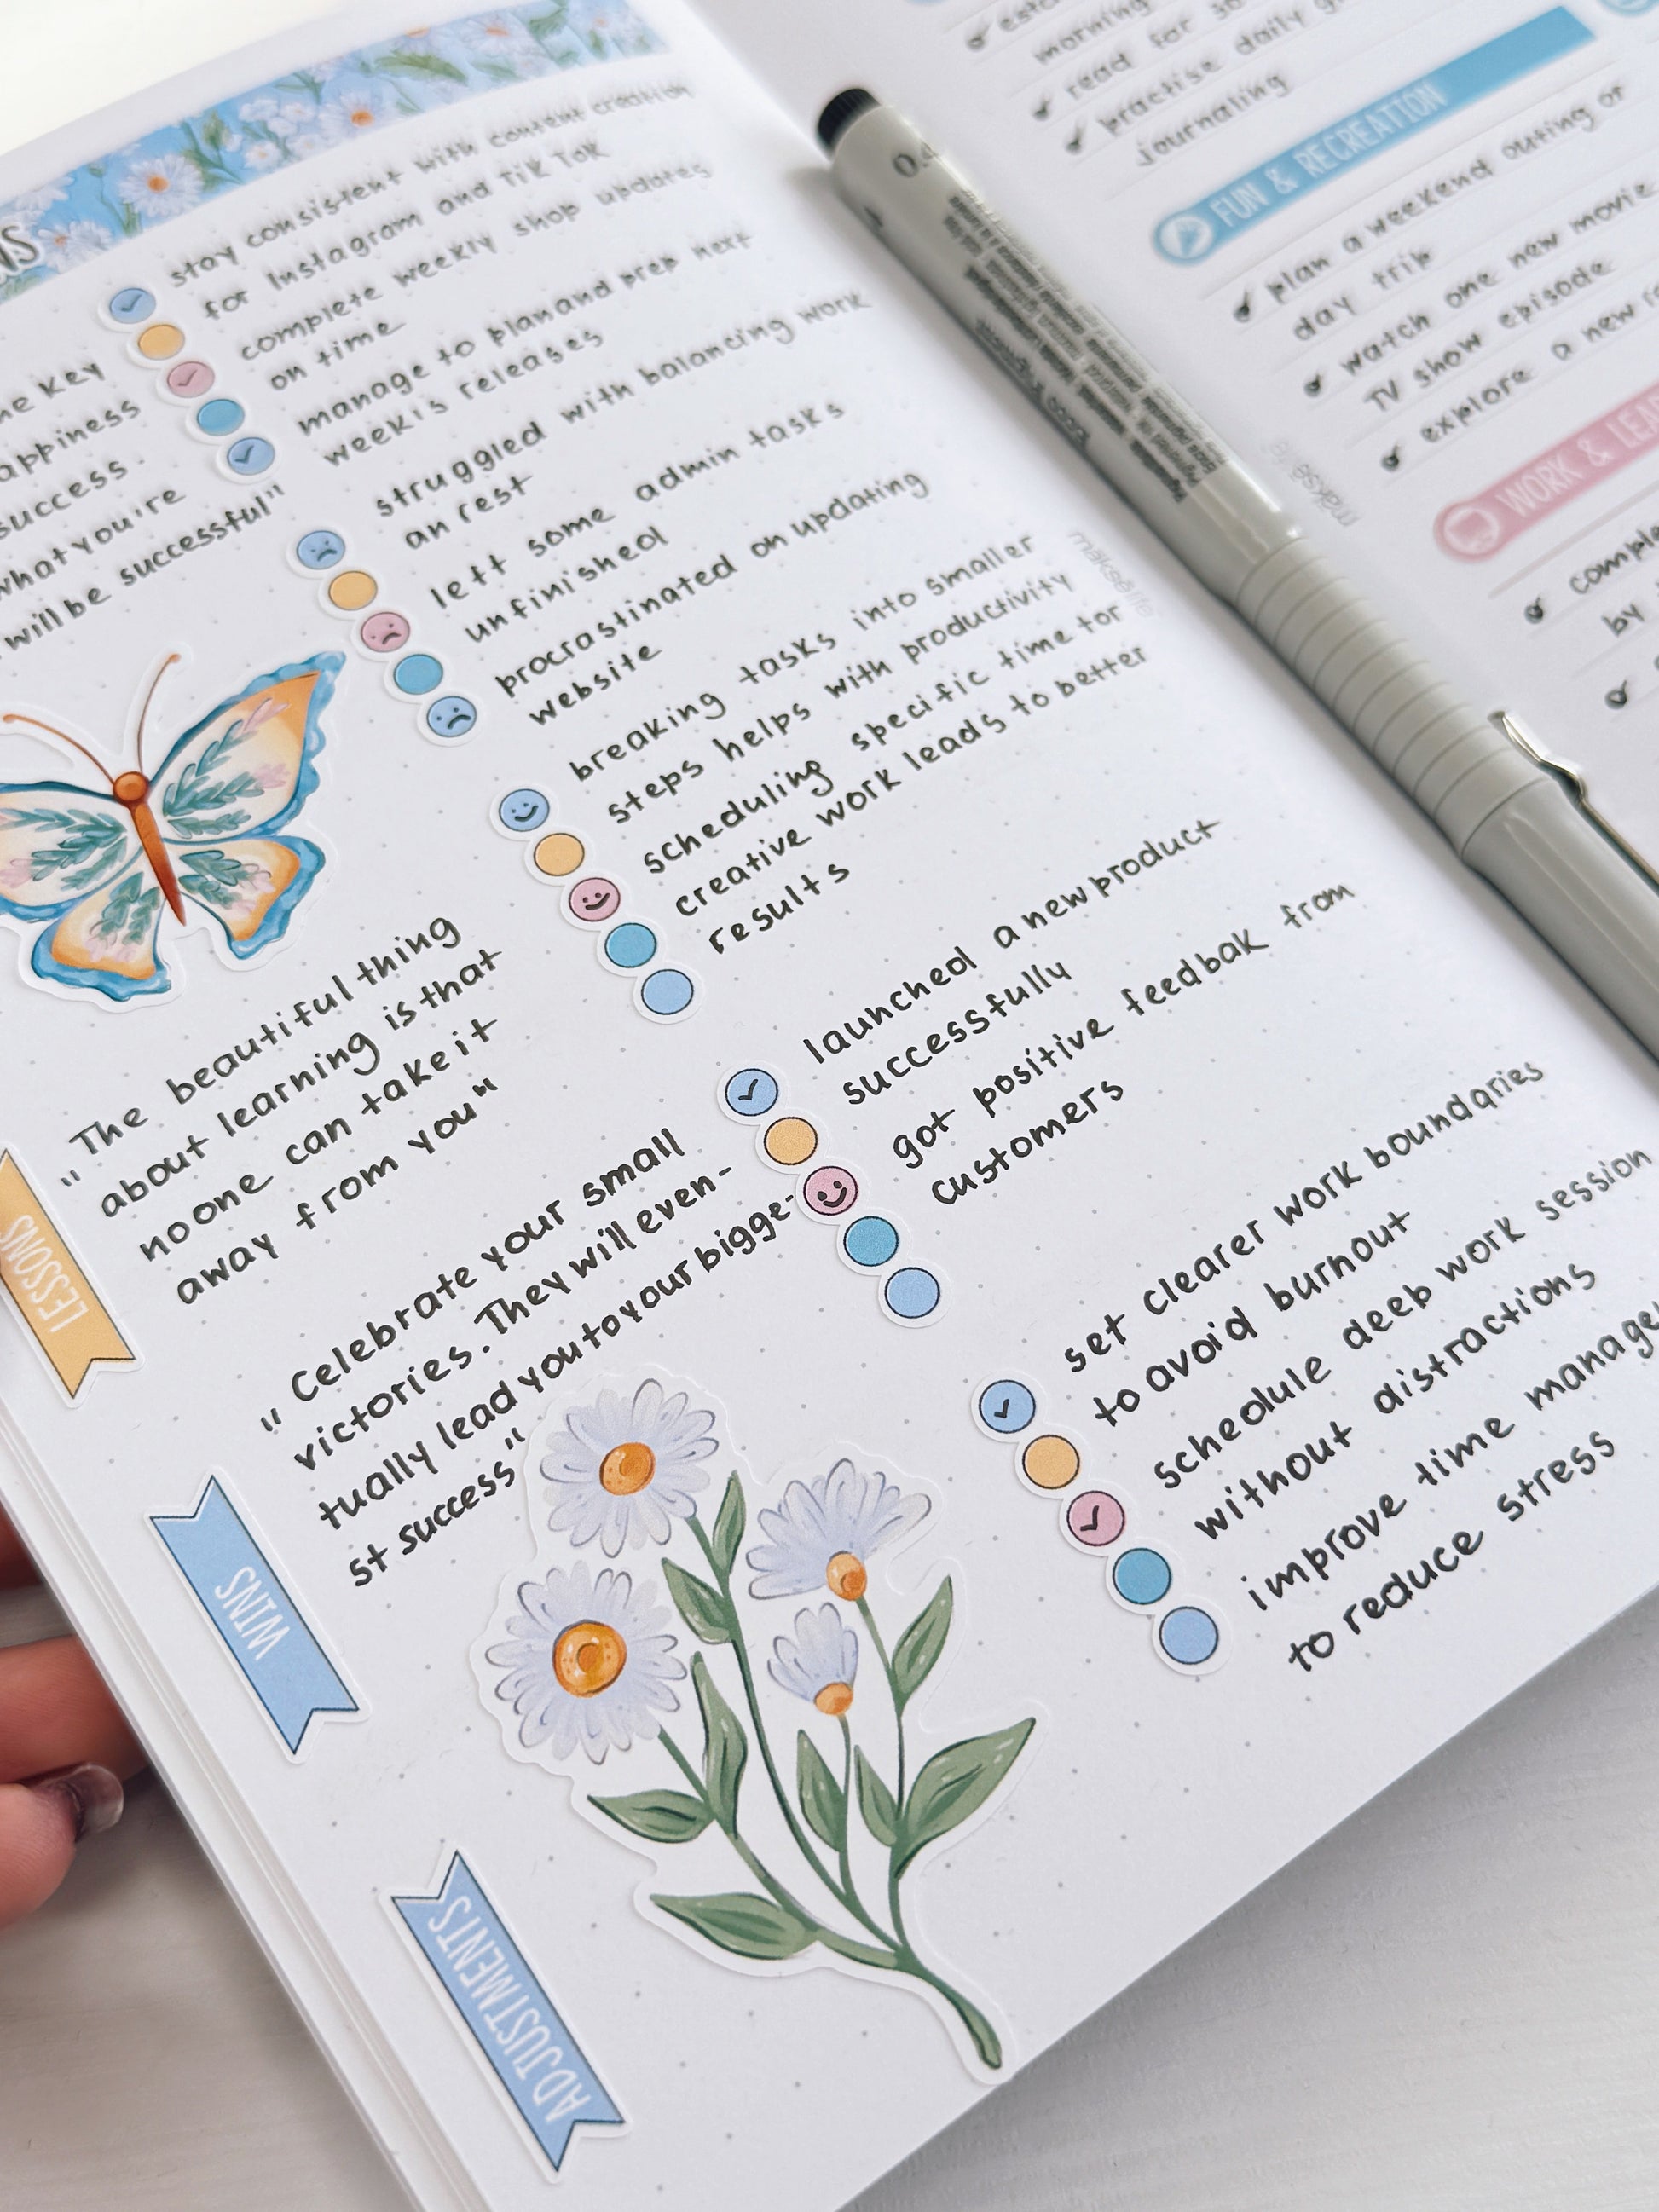 stay consistent with content creation
for Instagram and TikTok
complete weekly shop updates
on time
manage to plan and prep next
weekis releases
key
success.
what you're
will be successful"
struggled with balancing work
an rest
left some admin tasks
unfinished
procrastinated on updating
website
breaking tasks into smaller
steps helps with productivity
scheduling specific time for
creative work leads to better
results
"The beautiful thing
about learning is that
no one can take it
away from you"
LESSONS
launched a new product
successfully
got positive feedbak from
customers
"Celebrate your small
victories. They will even-
tually lead you to your bigge-
st success"
WINS
set clearer work boundaries
to avoid burnout
schedule deep work session
without distractions
improve time
to reduce stress
ADJUSTMENTS
morning
read for 30
practise daily
journaling
FUN & RECREATION
plan a weekend outing or
day trip
watch one new movie
TV show episode
explore a new
WORK &
by